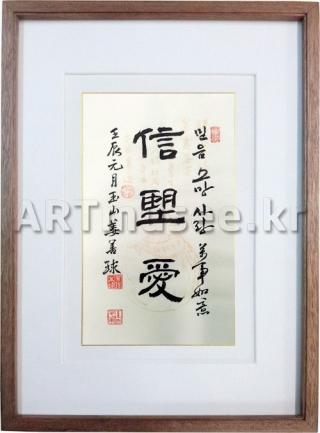 믿음 소망 사랑 萬事如意
信望愛
壬辰元月玉山姜善球
ARTmusee.kr